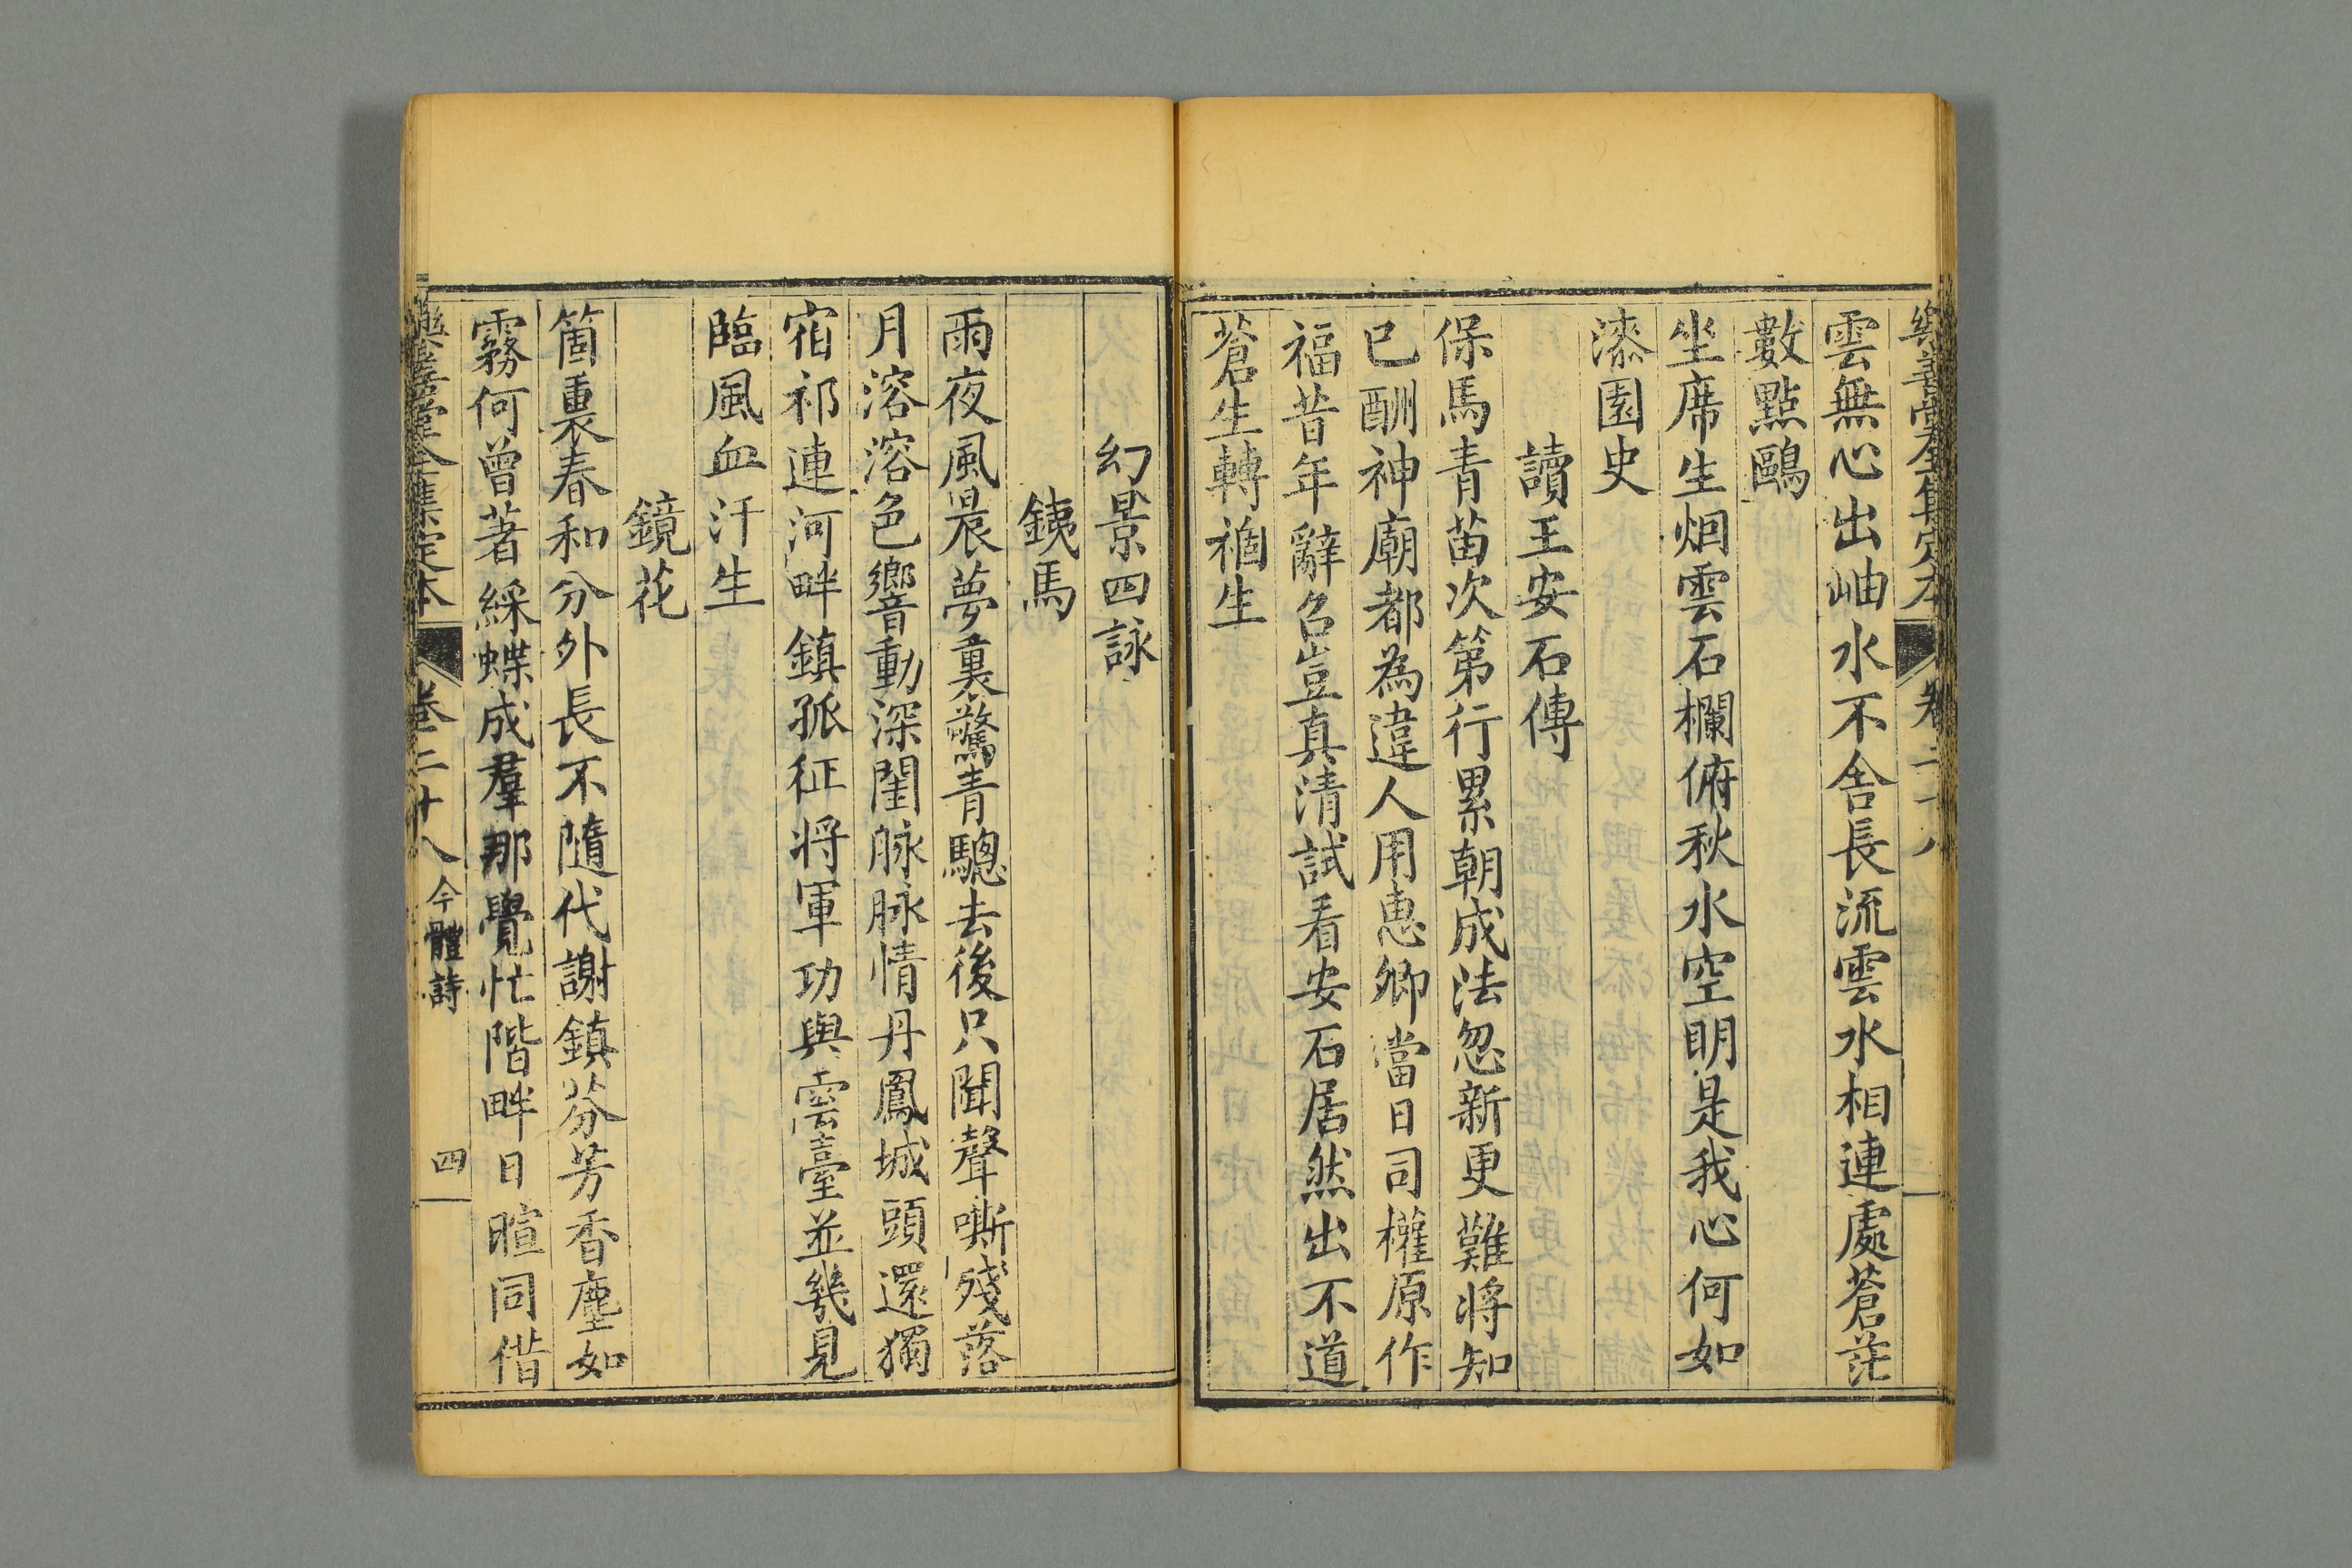 樂善堂全集定本 卷二十八
雲無心出岫水不舍長流雲水相連處蒼茫
數點鷗
坐席生烟雲石欄俯秋水空明是我心何如
漆園史
讀王安石傳
保馬青苗次第行累朝成法忽新更難將知
已酬神廟都為違人用惠卿當日司權原作
福昔年辭召豈真清試看安石居然出不道
蒼生轉禍生
幻景四詠
銕馬
雨夜風晨夢裏驚青驄去後只聞聲嘶殘落
月溶溶色響動深閨脉脉情丹鳳城頭還獨
宿祁連河畔鎮孤征將軍功與雲臺並幾見
臨風血汗生
鏡花
箇裏春和分外長不隨代謝鎮芬芳香塵如
霧何曾著綵蝶成羣那覺忙階畔日暄同偕
樂善堂全集定本 卷二十八 今體詩 四